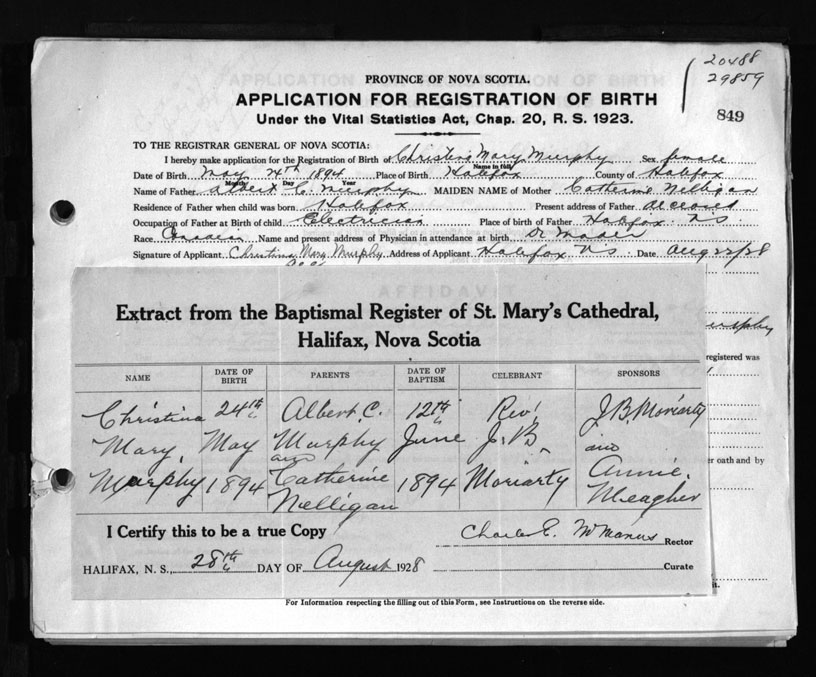 20488
29859
849
PROVINCE OF NOVA SCOTIA.
APPLICATION FOR REGISTRATION OF BIRTH
Under the Vital Statistics Act, Chap. 20, R. S. 1923.
TO THE REGISTRAR GENERAL OF NOVA SCOTIA:
I hereby make application for the Registration of Birth of Christina Mary Murphy Sex female
Name in full
Date of Birth May 24th 1894 Place of Birth Halifax County of Halifax
Month Day Year
Name of Father Albert C. Murphy MAIDEN NAME of Mother Catherine Nelligan
Residence of Father when child was born Halifax Present address of Father deceased
Occupation of Father at Birth of child Electrician Place of birth of Father Halifax NS
Race Canadian Name and present address of Physician in attendance at birth Dr Mader
Signature of Applicant Christina Mary Murphy Address of Applicant Halifax NS Date Aug 22/28
AFFIDAVIT
Murphy
registered was
er oath and by
Extract from the Baptismal Register of St. Mary's Cathedral,
Halifax, Nova Scotia
NAME DATE OF BIRTH PARENTS DATE OF BAPTISM CELEBRANT SPONSORS
Christina 24th Albert C. 12th Rev J.B. Moriarty
Mary, May Murphy June J.B. and
Murphy 1894 and Catherine 1894 Moriarty Annie
Nelligan Meagher
I Certify this to be a true Copy Charles E. McManus Rector
HALIFAX, N. S., 28th DAY OF August 1928 Curate
For Information respecting the filling out of this Form, see Instructions on the reverse side.